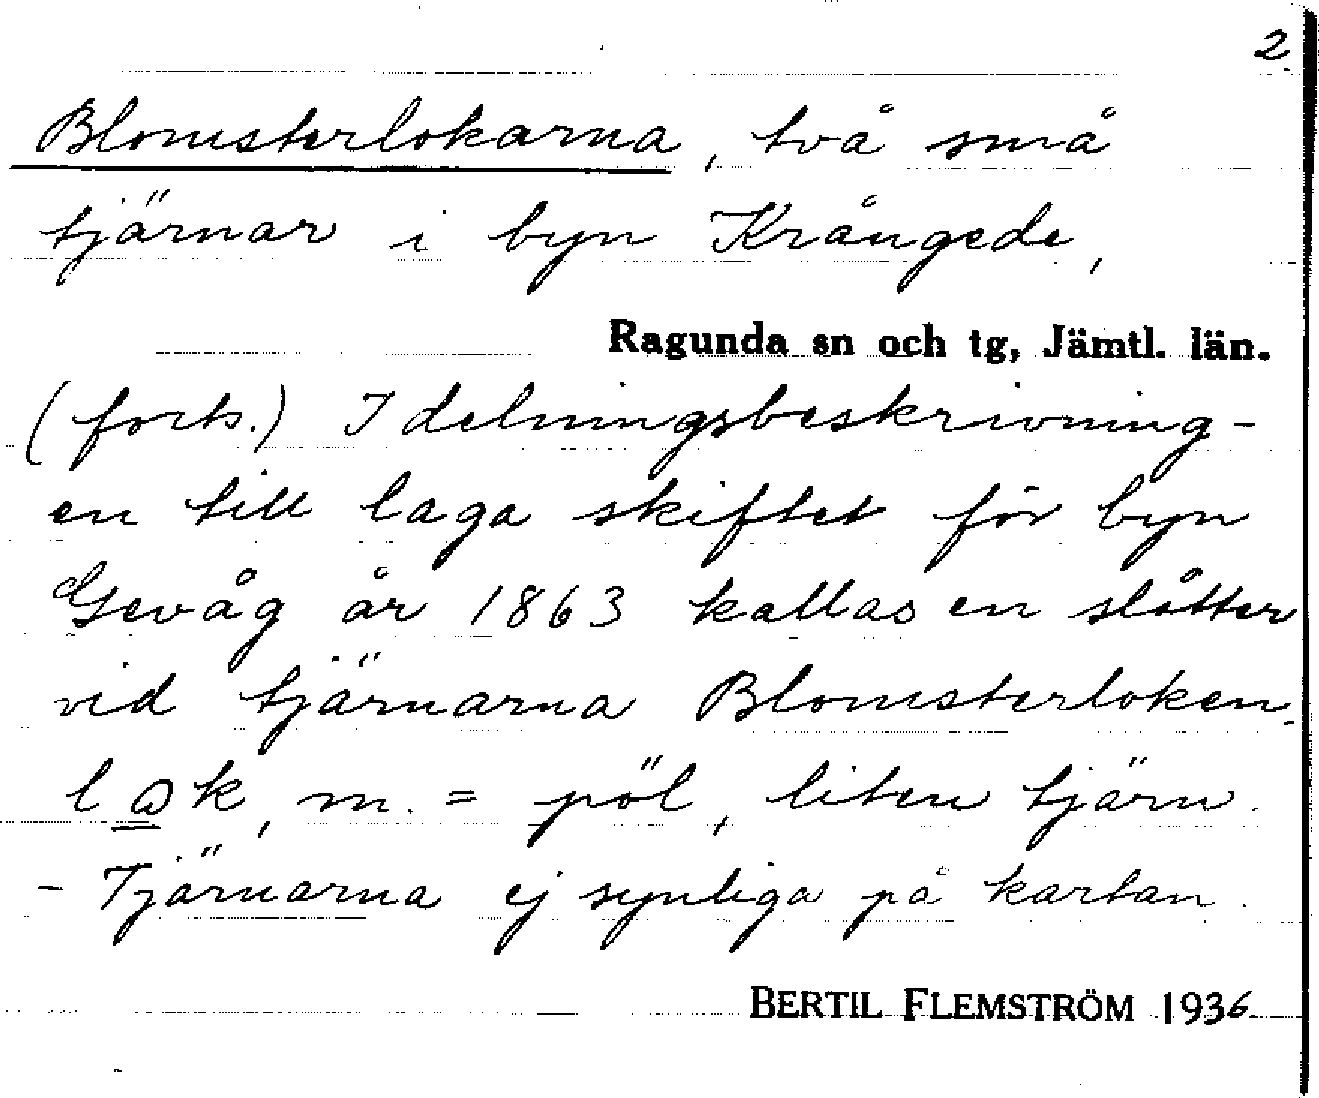 2
Blomsterlokarna, två små
tjärnar i byn Krångede,
Ragunda sn och tg, Jämtl. län.
(forts.) I delningsbeskrivning-
en till laga skiftet för byn
Gevåg år 1863 kallas en slåtter
vid tjärnarna Blomsterloken.
lok, m. = pöl, liten tjärn.
- Tjärnarna ej synliga på kartan.
BERTIL FLEMSTRÖM 1936